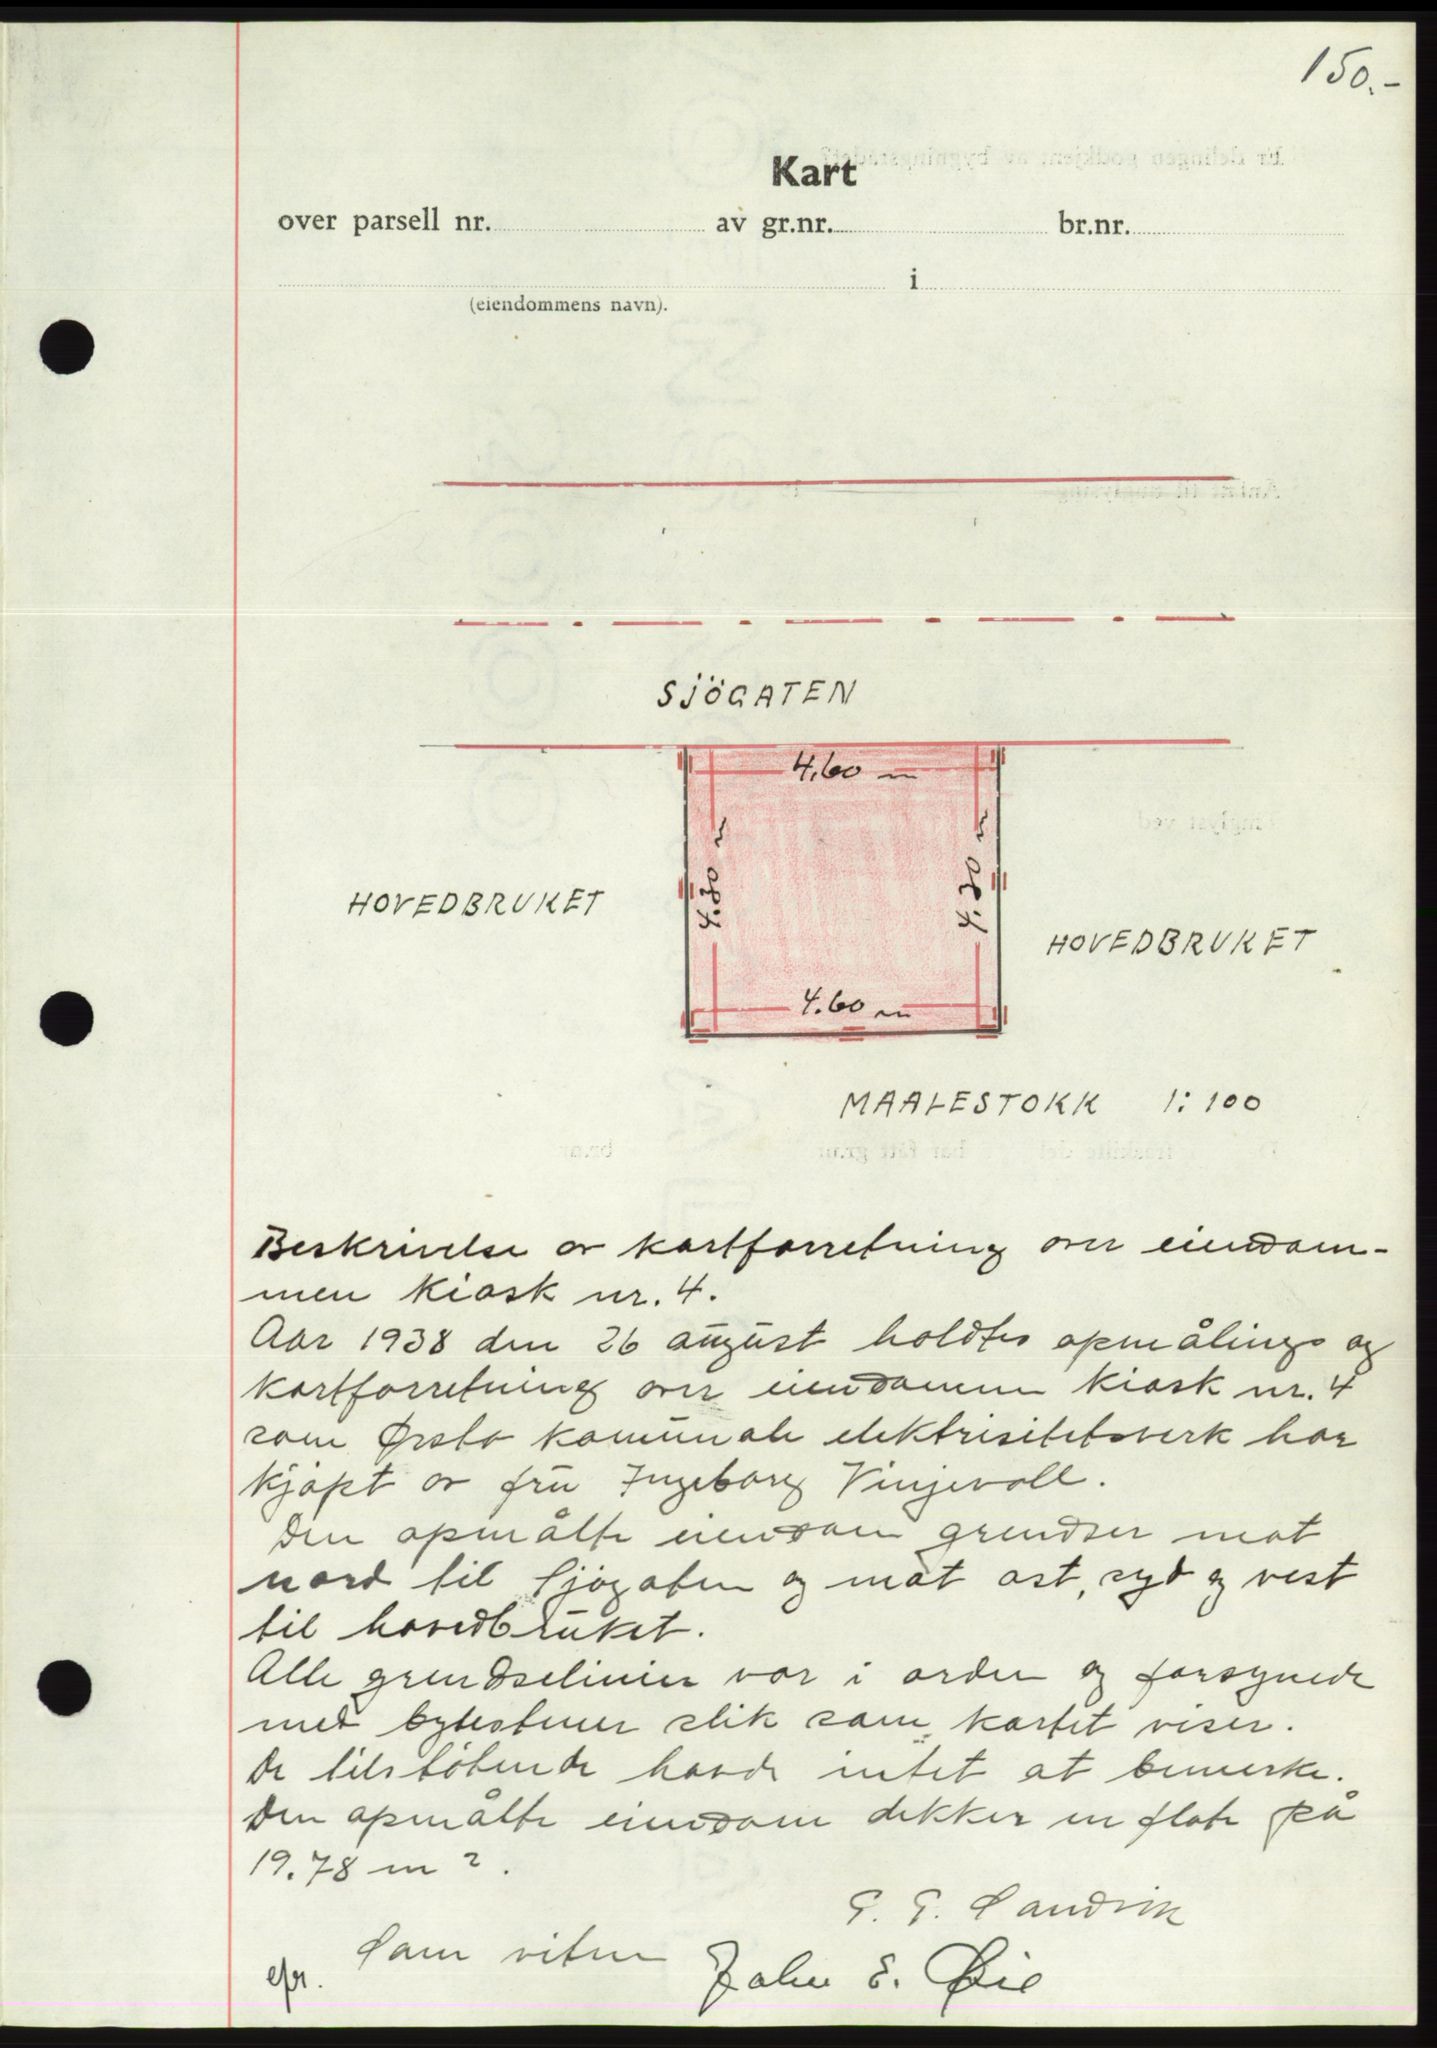 150.-
Kart
over parsell nr. av gr.nr. br.nr.
i
(eiendommens navn).
SJÖGATEN
4.60 m
4.30 m
4.30 m
HOVEDBRUKET
HOVEDBRUKET
4.60 m
MAALESTOKK 1:100
Beskrivelse av kartforretning over eiendom-
men kiosk nr. 4.
Aar 1938 den 26 august holdtes opmålings og
kartforretning over eiendommen kiosk nr. 4
som Ørsta komunale elektrisitetsverk har
kjøpt av fru Ingeborg Vinjevoll.
Den opmålte eiendom grendser mot
nord til Sjøgaten og mot øst, syd og vest
til hovedbruket.
Alle grendselinier var i orden og forsynede
med bytestener slik som kartet viser.
De tilstötende havde intet at bemerke.
Den opmålte eiendom dekker en flate på
19.78 m².
Sandvik
Som viten
John E. Øie